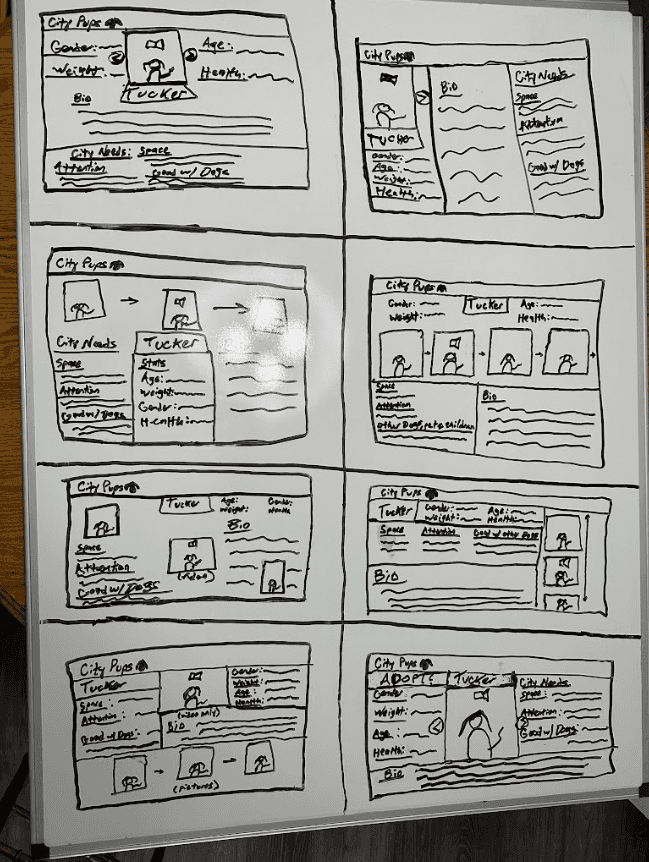 City Pups
Gender: Age:
Weight: Health:
Tucker
Bio
City Needs: Space
Attention Good w/ Dogs
City Pups
Tucker
Gender:
Age:
Weight:
Health:
Bio
City Needs
Space
Attention
Good w/ Dogs
City Pups
City Needs
Space
Attention
Good w/ Dogs
Tucker
Stats
Age:
Weight:
Gender:
Health:
City Pups
Gender: Tucker Age:
Weight: Health:
Space
Attention
Other Dogs, pets children
Bio
City Pups
Tucker Age: Gender:
Weight: Health
Space
Attention
Good w/ Dogs
(video)
Bio
City Pups
Tucker Gender: Age:
Weight: Health:
Space Attention Good w/ other Dogs
Bio
City Pups
Tucker
Space:
Attention:
Good w/ Dogs:
(video only)
Gender:
Weight:
Age:
Health:
Bio
(pictures)
City Pups
ADOPT! Tucker City Needs
Gender
Weight:
Age:
Health:
Space:
Attention:
Good w/ Dogs
Bio